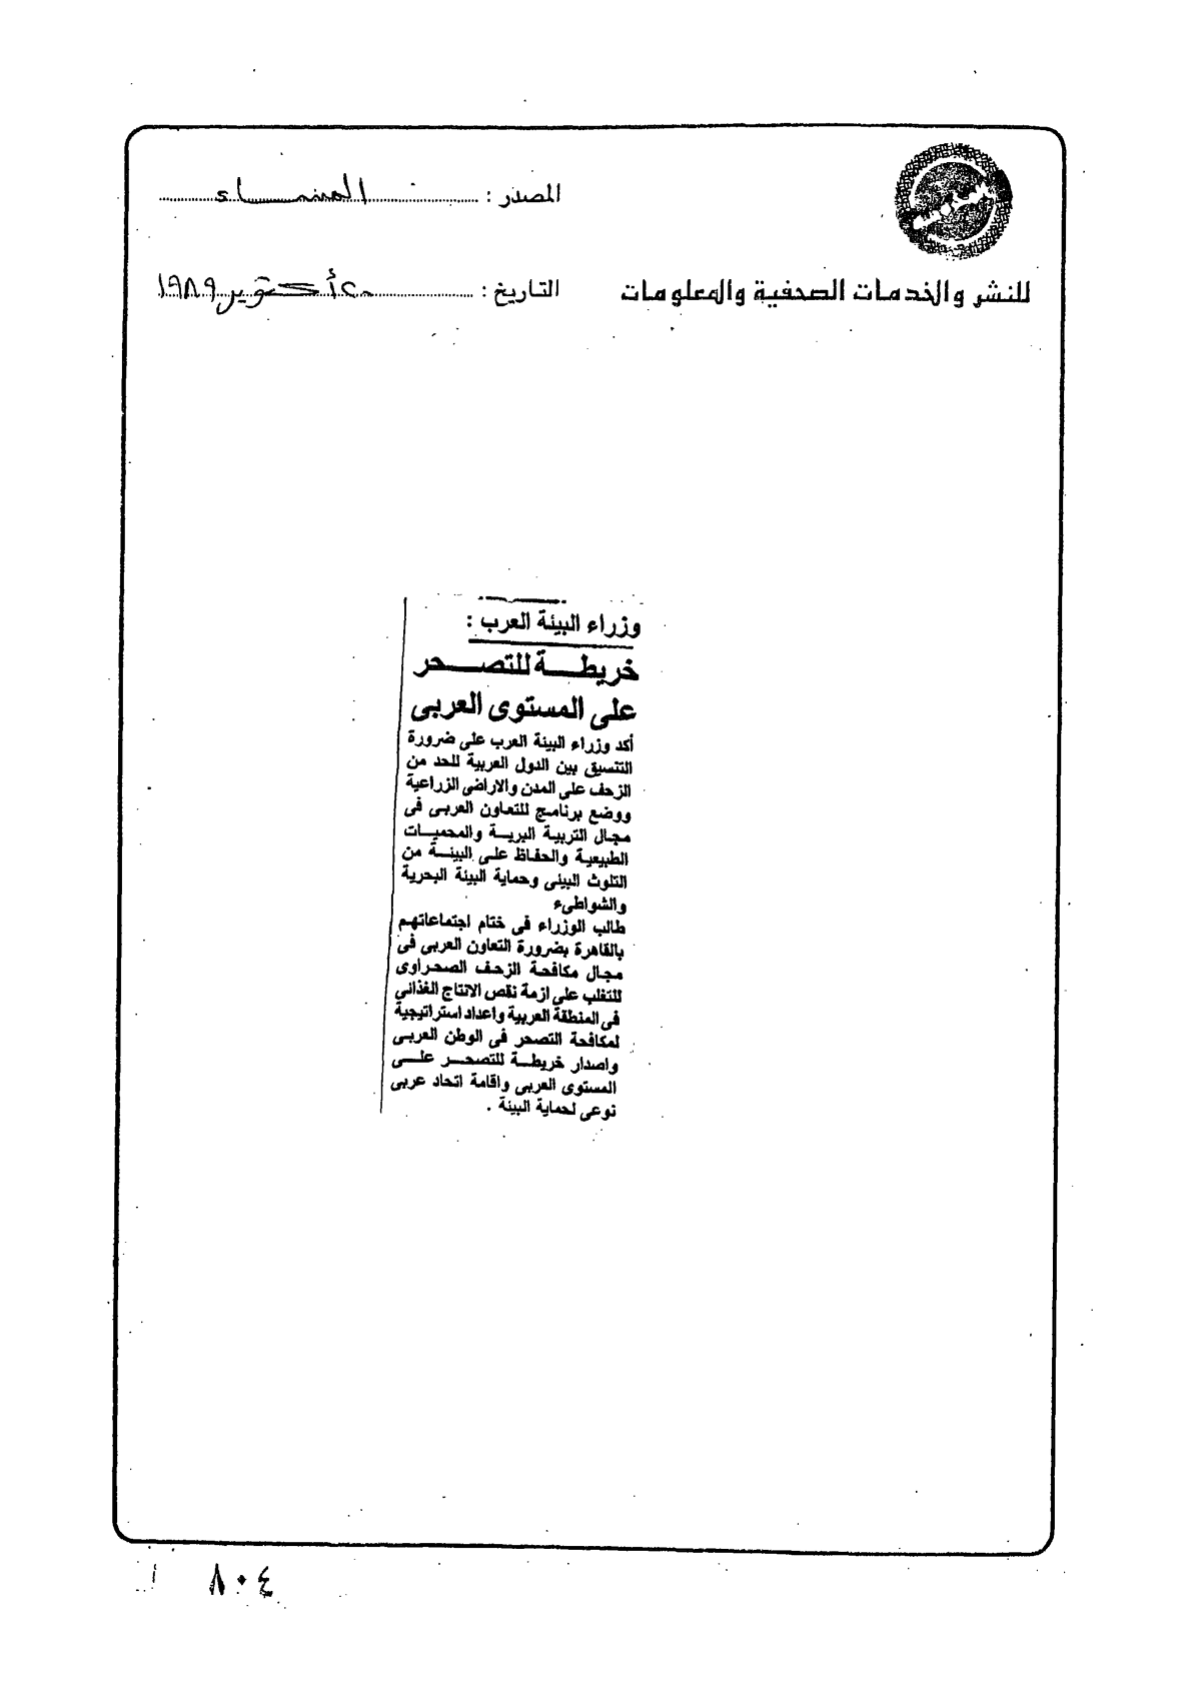 المصدر : المساء
للنشر والخدمات الصحفية والمعلومات
التاريخ : ٢٠ أكتوبر ١٩٨٩
وزراء البيئة العرب :
خريطة للتصحر
على المستوى العربى
أكد وزراء البيئة العرب على ضرورة
التنسيق بين الدول العربية للحد من
الزحف على المدن والاراضى الزراعية
ووضع برنامج للتعاون العربى فى
مجال التربية البرية والمحميات
الطبيعية والحفاظ على البيئة من
التلوث البيئى وحماية البيئة البحرية
والشواطىء
طالب الوزراء فى ختام اجتماعاتهم
بالقاهرة بضرورة التعاون العربى فى
مجال مكافحة الزحف الصحراوى
للتغلب على ازمة نقص الانتاج الغذائى
فى المنطقة العربية واعداد استراتيجية
لمكافحة التصحر فى الوطن العربى
واصدار خريطة للتصحر على
المستوى العربى واقامة اتحاد عربى
نوعى لحماية البيئة .
٨٠٤